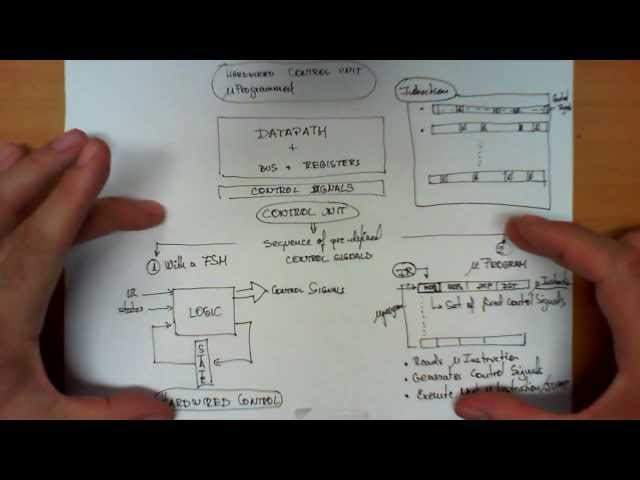 HARDWIRED CONTROL UNIT
μProgrammed
Instructions
Control
Signals
DATAPATH
+
BUS + REGISTERS
CONTROL SIGNALS
CONTROL UNIT
Sequence of pre-defined
CONTROL SIGNALS
1 With a FSM
IR
status
LOGIC
CONTROL SIGNALS
STATE
HARDWIRED CONTROL
2
μ PROGRAM
IR
μ Instruction
μprogram
Set of fixed Control Signals
• Reads μ Instruction
• Generates Control Signals
• Execute Next μ Instruction/JUMP